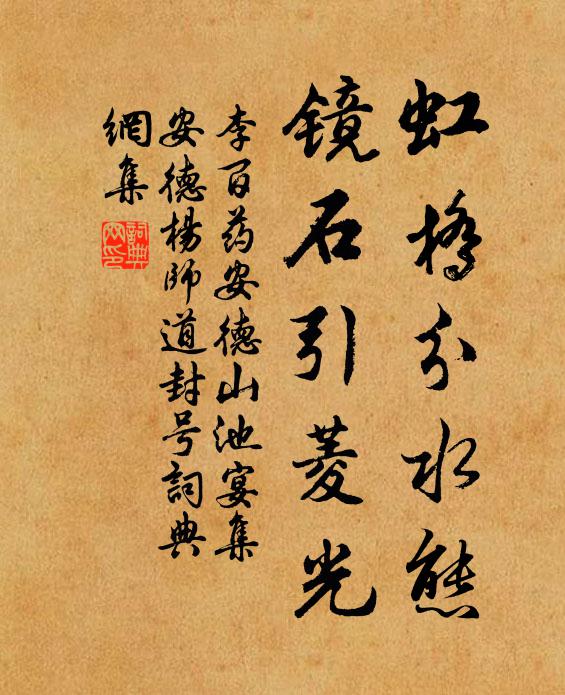 虹橋分水態
镜石引菱光
李百药安德山池宴集
安德楊師道封号詞典
網集
詞典網印